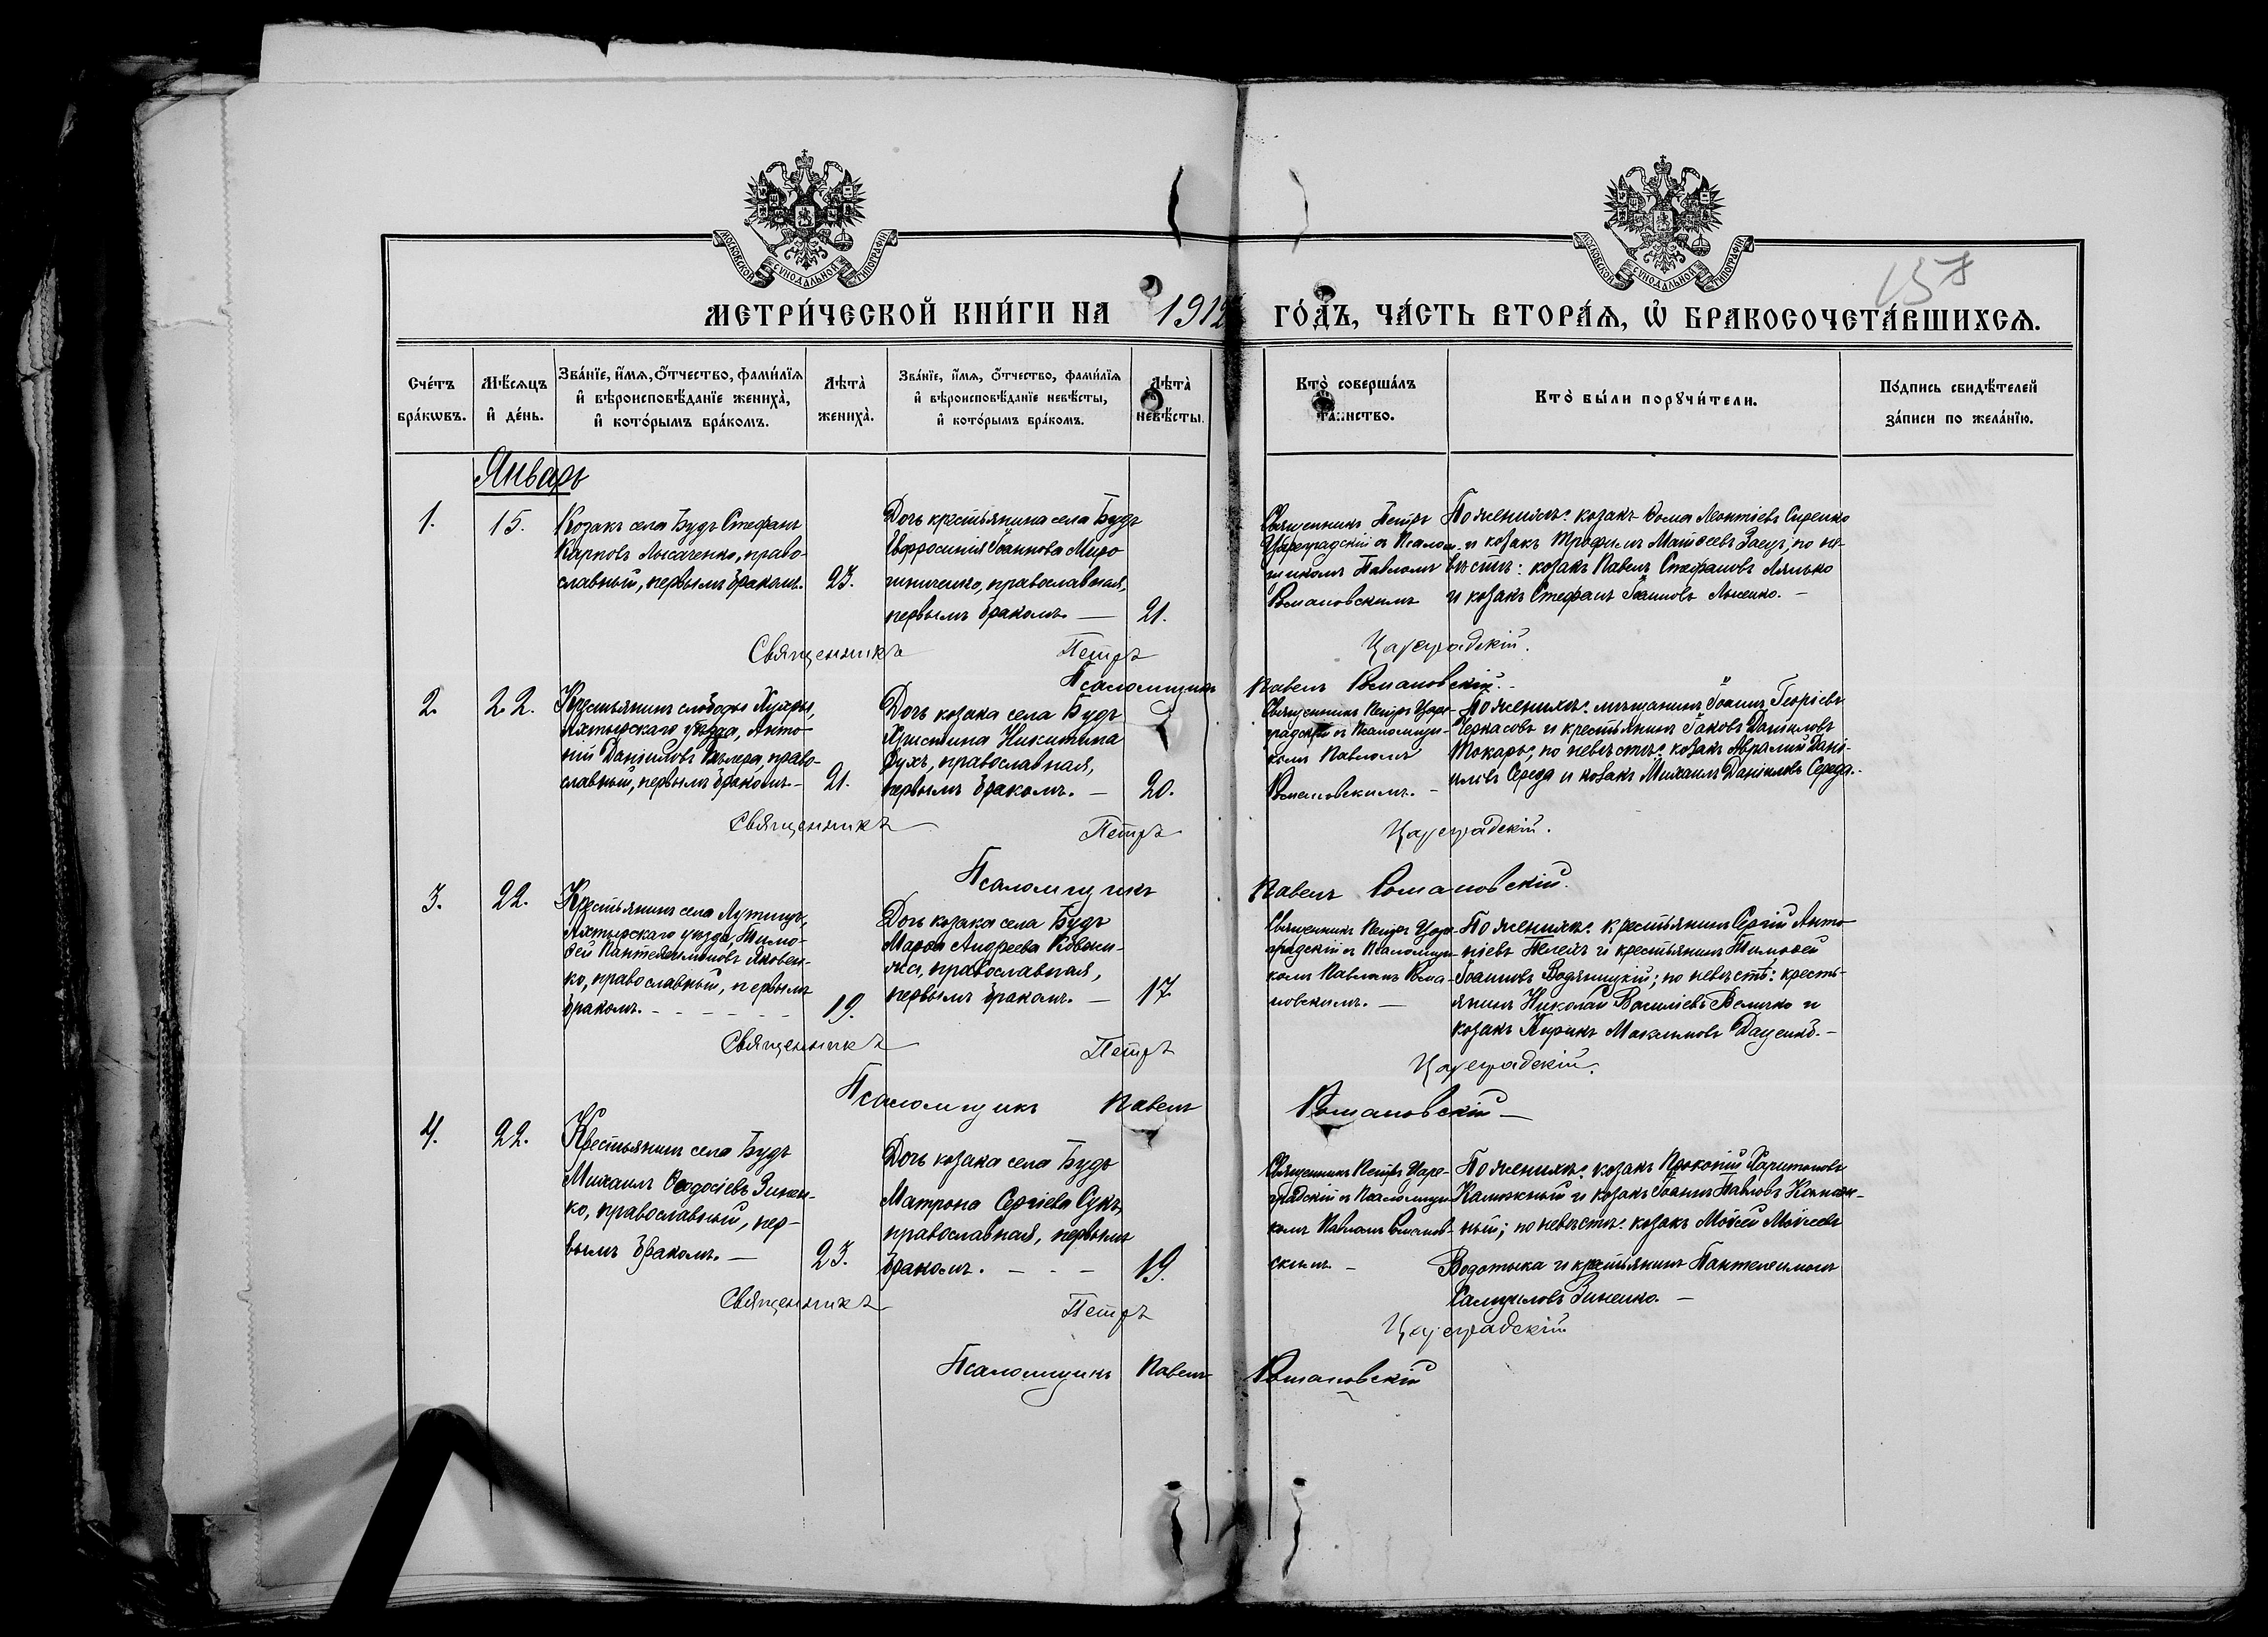 МОСКОВСКОЙ СУНОДАЛЬНОЙ ТИПОГРАФІИ
МОСКОВСКОЙ СУНОДАЛЬНОЙ ТИПОГРАФІИ
158
МЕТРИ́ЧЕСКОЙ КНИ́ГИ НА 1912 ГО́ДЪ, ЧА́СТЬ ВТОРА́Ѧ, Ѡ҆ БРАКОСОЧЕТА́ВШИХСѦ.
Сче́тъ
бра́кѡвъ.
Мѣ́сѧцъ
и҆ де́нь.
Зва́нїе, и҆́мѧ, ѻ҆́тчество, фами́лїѧ
и҆ вѣроисповѣ́данїе жениха̀,
и҆ кото́рымъ бра́комъ.
Лѣта̀
жениха̀.
Зва́нїе, и҆́мѧ, ѻ҆́тчество, фами́лїѧ
и҆ вѣроисповѣ́данїе невѣ́сты,
и҆ кото́рымъ бра́комъ.
Лѣта̀
невѣ́сты.
Кто̀ соверша́лъ
та́инство.
Кто̀ бы́ли порꙋчи́тели.
По́дпись свидѣ́телей
за́писи по жела́нїю.
Январь
1.
15.
Козакъ села Будъ Стефанъ
Карповъ Лысаченко, право-
славный, первымъ бракомъ.
23.
Дочь крестьянина села Будъ
Евфросинія Іоаннова Миро
шниченко, православная,
первымъ бракомъ. —
21.
Священникъ Петръ
Цареградскій съ Псалом-
щикомъ Павломъ
Романовскимъ
По женихѣ: козакъ Ѳома Леонтіевъ Сиренко
и козакъ Трофимъ Матѳеевъ Заецъ; по не-
вѣстѣ: козакъ Павелъ Стефановъ Лялько
и козакъ Стефанъ Іоанновъ Лысенко. —
Священникъ Петръ Цареградскій.
Псаломщикъ Павелъ Романовскій. —
2.
22.
Крестьянинъ слободы Хухры,
Ахтырскаго уѣзда, Анто-
ній Даніиловъ, право-
славный, первымъ бракомъ. —
21.
Дочь козака села Будъ
Христина Никитина
Духъ, православная,
первымъ бракомъ. —
20.
Священникъ Петръ Царе-
градскій съ Псаломщи-
комъ Павломъ
Романовскимъ. —
По женихѣ: мѣщанинъ Іоаннъ Георгіевъ
Черкасовъ и крестьянинъ Іаковъ Даніиловъ
Токарь; по невѣстѣ: козакъ Аврамій Дані-
иловъ Середа и козакъ Михаилъ Даніиловъ Середа. —
Священникъ Петръ Цареградскій.
Псаломщикъ Павелъ Романовскій.
3.
22.
Крестьянинъ села Лутищъ,
Ахтырскаго уѣзда, Тимо-
ѳей Пантелеимоновъ Яковен-
ко, православный, первымъ
бракомъ. - - - - - -
19.
Дочь козака села Будъ
Марѳа Андреева
православная,
первымъ бракомъ. —
17.
Священникъ Петръ Царе-
градскій съ Псаломщи-
комъ Павломъ Рома-
новскимъ. —
По женихѣ: крестьянинъ Сергій Анто-
ніевъ и крестьянинъ Тимоѳей
Іоанновъ Водяницкій; по невѣстѣ: кресть-
янинъ Николай Василіевъ Величко и
козакъ Кирикъ Максимовъ Даценко. —
Священникъ Петръ Цареградскій.
Псаломщикъ Павелъ Романовскій —
4.
22.
Крестьянинъ села Будъ
Михаилъ Ѳеодосіевъ Зинен-
ко, православный, пер-
вымъ бракомъ. —
23.
Дочь козака села Будъ
Матрона Сергіева Сукъ,
православная, первымъ
бракомъ. - - -
19.
Священникъ Петръ Царе-
градскій съ Псаломщи-
комъ Павломъ Романов-
скимъ. —
По женихѣ: козакъ Прокопій Харитоновъ
Калюжный и козакъ Іоаннъ Павловъ
ный; по невѣстѣ: козакъ Моисей Моисеевъ
Водотыка и крестьянинъ Пантелеимонъ
Самуиловъ Зиненко. —
Священникъ Петръ Цареградскій
Псаломщикъ Павелъ Романовскій